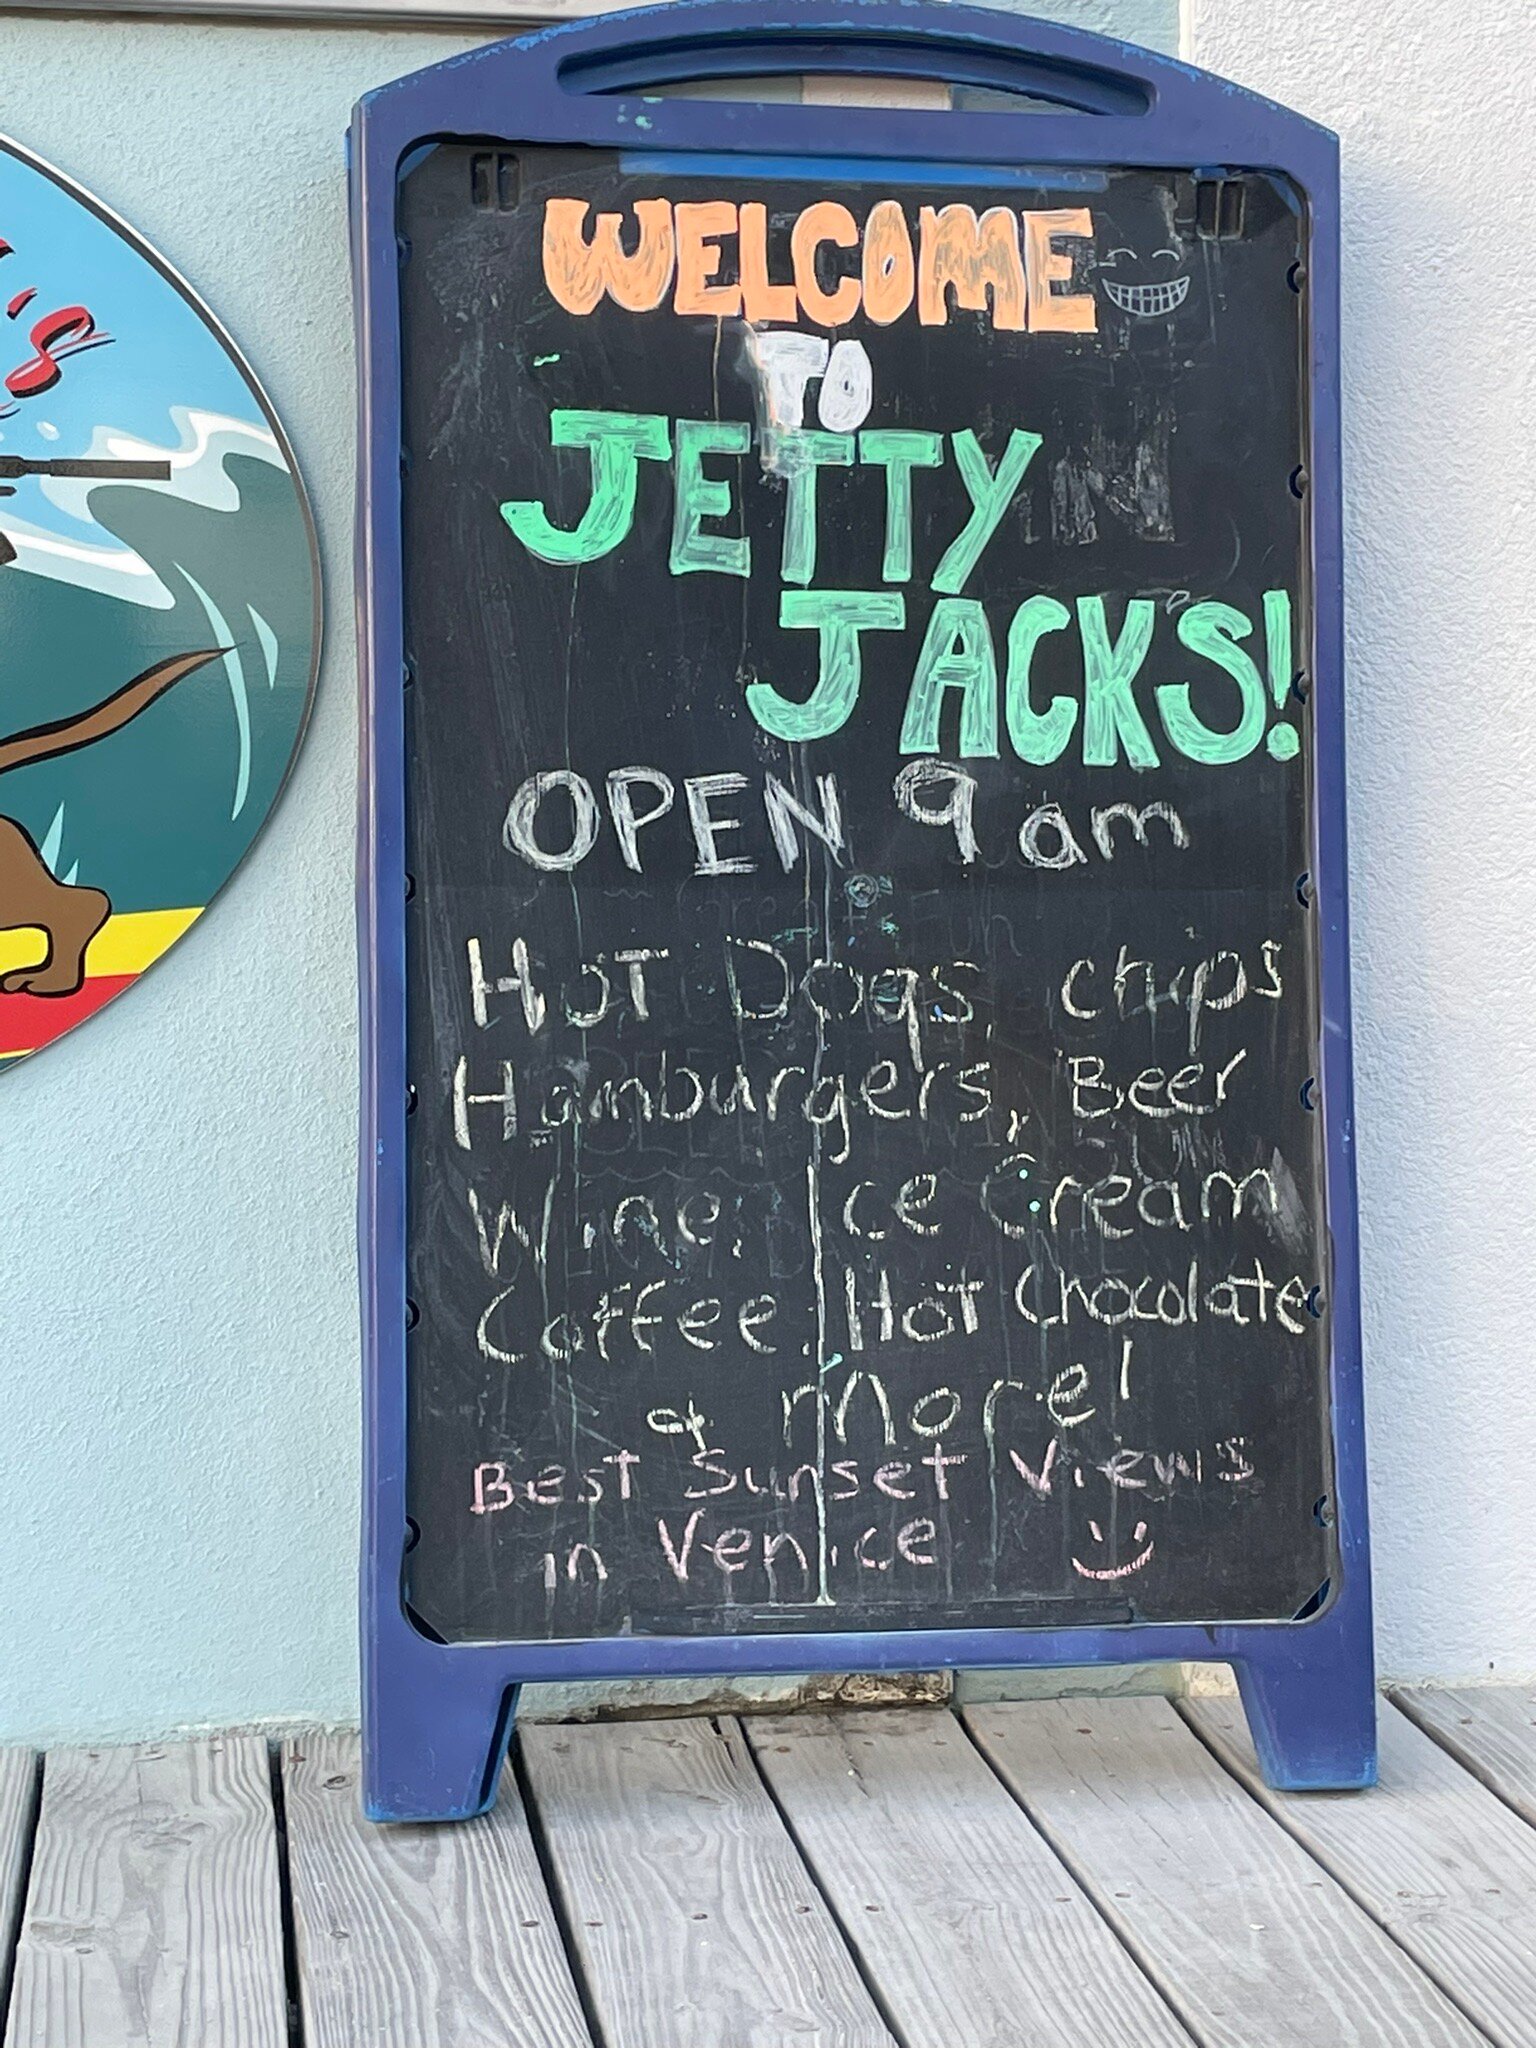 's
WELCOME
TO
JETTY
JACKS!
OPEN 9am
HOT Dogs, chips
Hamburgers, Beer
Wine, Ice Cream
Coffee, Hot Chocolate
& more!
Best Sunset Views
in Venice